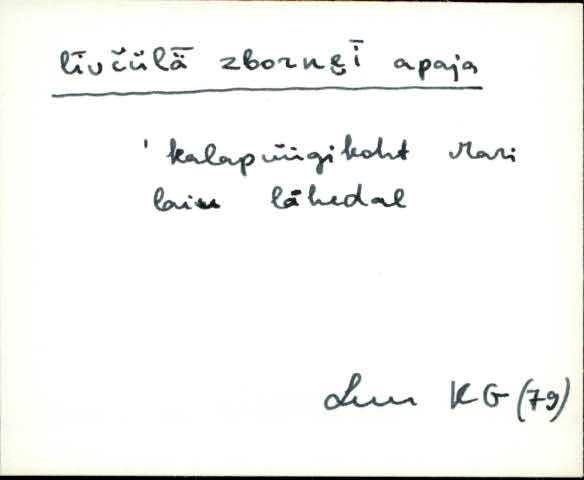 līvčülǟ zborneī apaja
' kalapüügikoht Mari
laiu lähedal
KG (79)